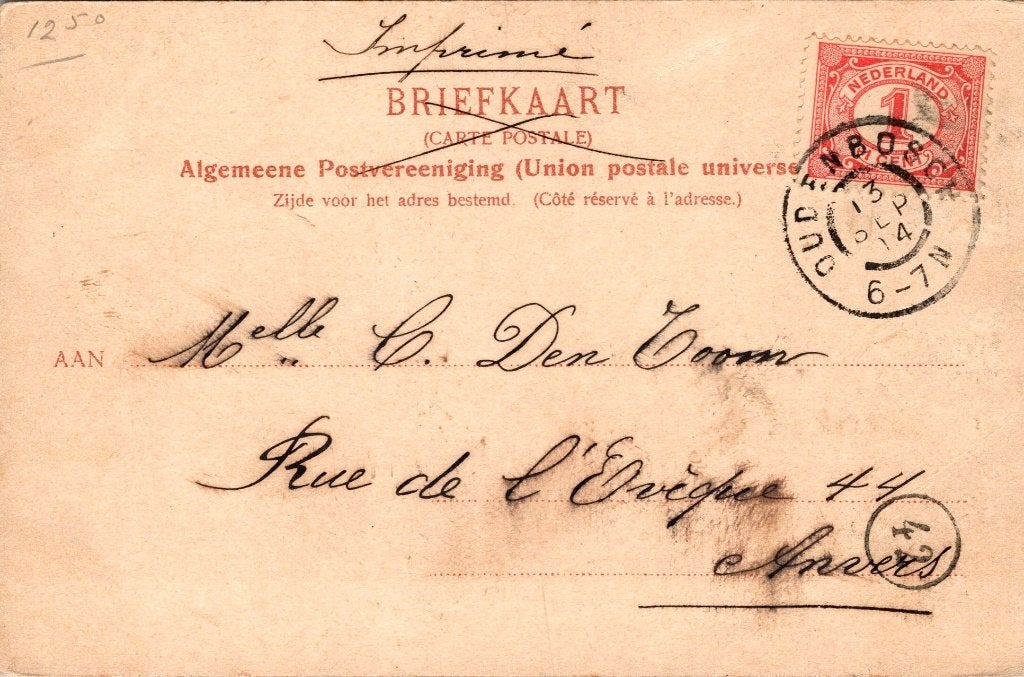 1250
Imprimé
BRIEFKAART
(CARTE POSTALE)
Algemeene Postvereeniging (Union postale universe
Zijde voor het adres bestemd. (Côté réservé à l'adresse.)
NEDERLAND
1
CENT
OUDENBOSCH
13
04
6-7N
AAN Melle C. Den Toom
Rue de l'Evêque 44
42
Anvers